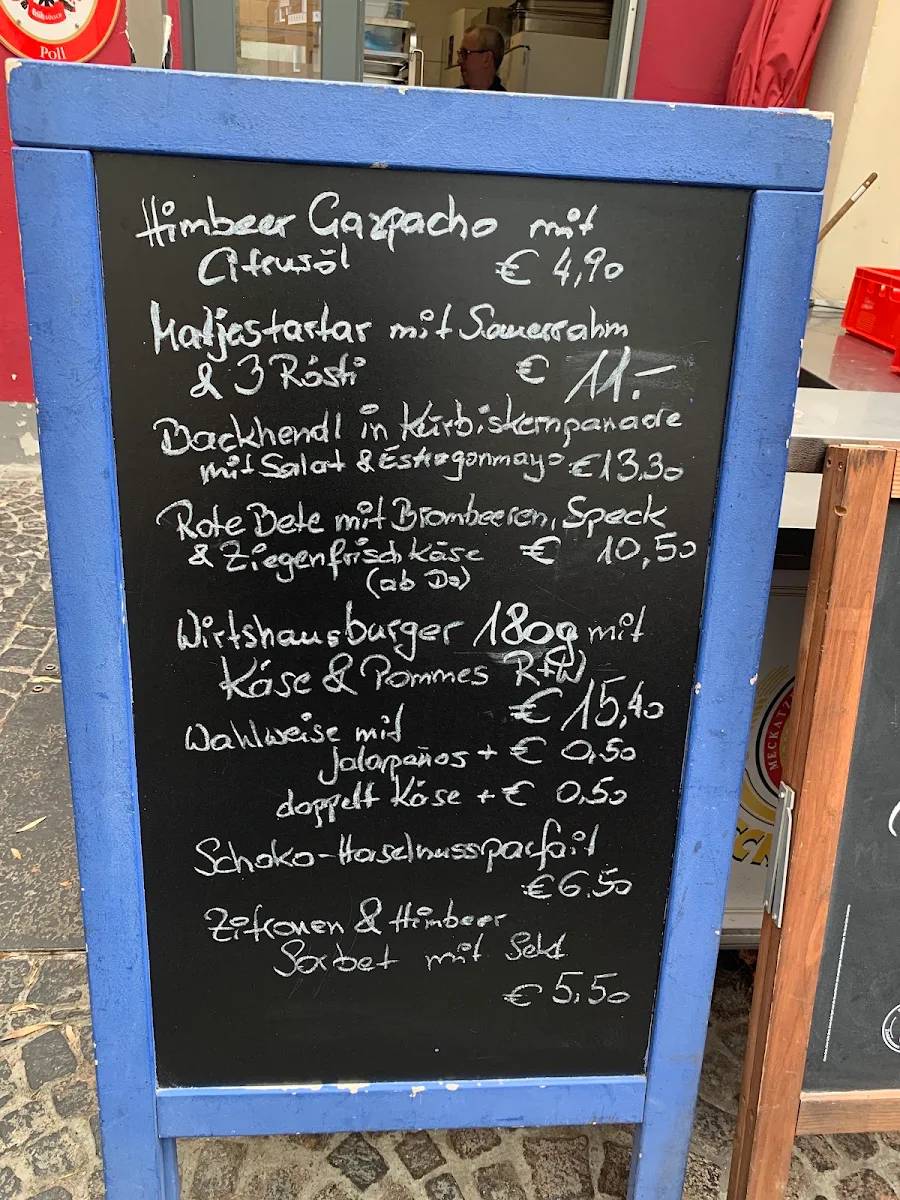 Poll
Himbeer Gazpacho mit
Citrusöl € 4,90
Matjestartar mit Sauerrahm
& 3 Rösti € 11.-
Backhendl in Kürbiskernpanade
mit Salat & Estragonmayo € 13,30
Rote Bete mit Brombeeren, Speck
& Ziegenfrischkäse € 10,50
(ab Do)
Wirtshausburger 180g mit
Käse & Pommes R+W
€ 15,40
Wahlweise mit
Jalapaños + € 0,50
doppelt Käse + € 0,50
Schoko-Haselnussparfait
€ 6,50
Zitronen & Himbeer
Sorbet mit Sekt
€ 5,50
MECKATZ